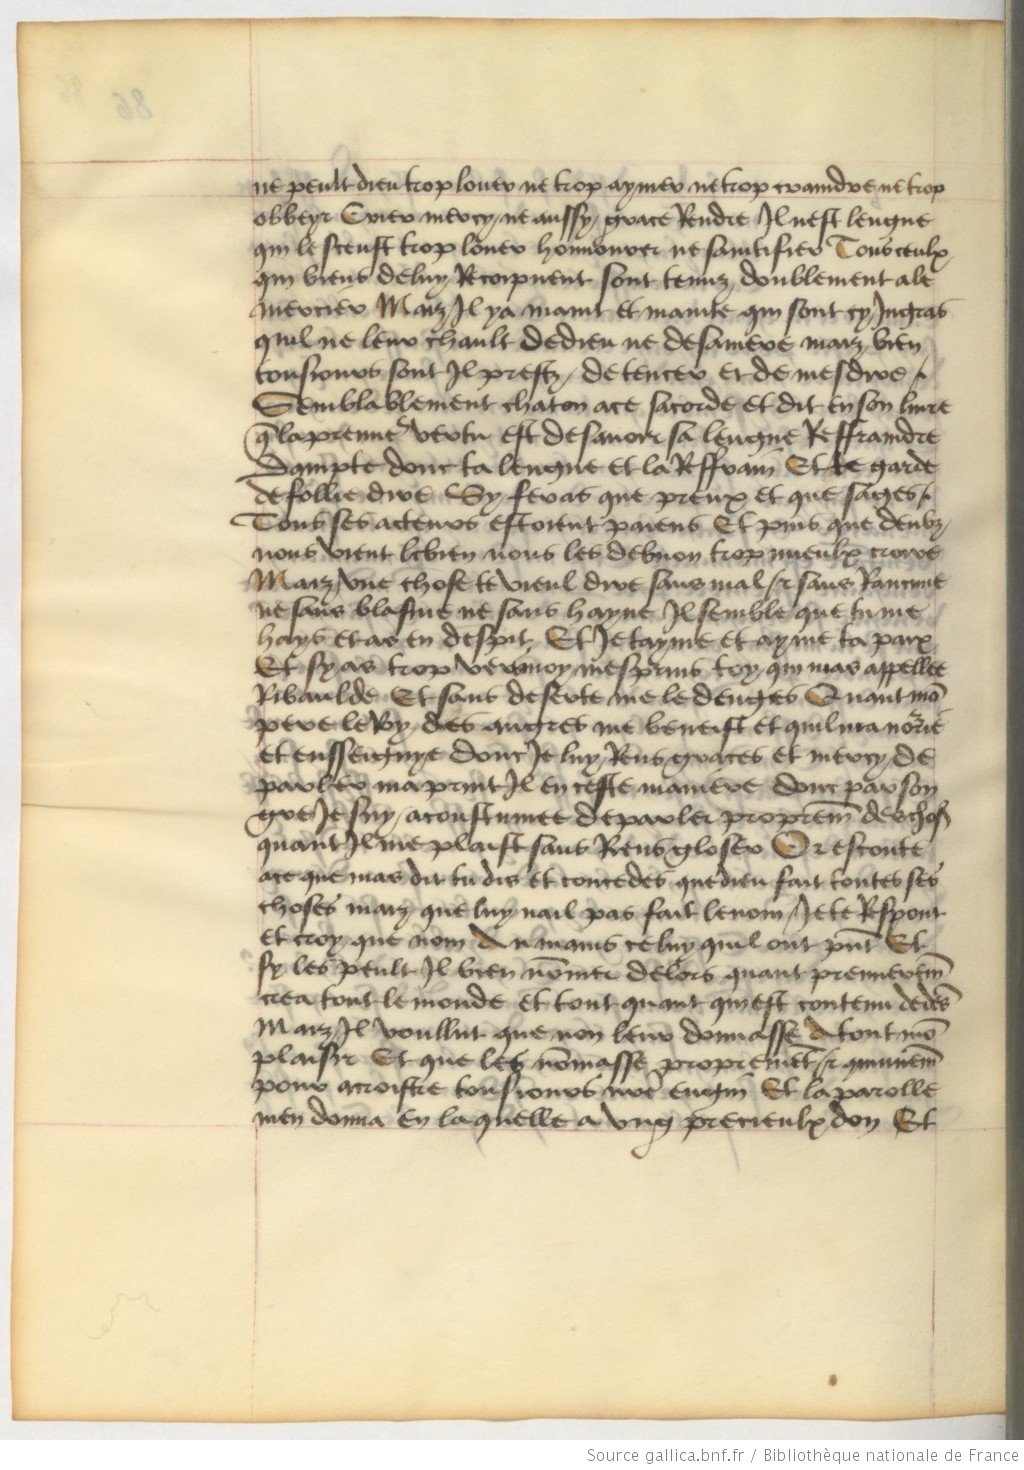 ne peult dieu trop louer ne trop aymer ne trop craindre ne trop
obbeyr Crier mercy ne aussy grace Rendre Il nest lengue
qui le sceust trop louer honnourer ne saintifier Tous ceulx
qui biens de luy Recoipuent sont tenuz doublement a le
mercier Maiz Il ya maint et mainte qui sont cy Ingras
quil ne leur chault de dieu ne de sa mere maiz bien
tousiours sont Il prestz de tencer et de mesdire
Semblablement chaton a ce sacorde et dit en son liure
q la premie vertu est de sauoir sa lengue Reffraindre
Dampte donc ta lengue et la Reffrain Et te garde
de follie dire Sy feras que preux et que sages
Tous ses acteurs estoient paiens Et puis que deulz
nous vient le bien nous les deuuon trop mieulx croire
Maiz vne chose te vieul dire sans mal & sans Rancune
ne sans blasme ne sans hayne Il semble que tu me
hays et as en despit Et Je tayme et ayme ta paix
Et sy as trop vers moy mesprins toy qui mas appellee
Ribaulde Et sans deserte me ledenges Quant mo
pere le Roy des angres me beneist et quil ma norie
et ensseignye donc Je luy Rens graces et mercy de
parler maprint Il en ceste maniere donc par son
gre Je suy acoustumee de parler proprem des chos
quant Il me plaist sans Rens gloser Or escoute
a ce que mas dit tu dis et concedes que dieu fait toutes ses
choses maiz que luy nail pas fait le nom Je te Respont
et croy que nom Au mains celuy quil ont pnt Et
sy les peult Il bien nomer delors quant premierem
crea tout le monde et tout quant qui est contenu dedes
Maiz Il voullut que non leur donnasse a tout mo
plaisir Et que les nomasse propremet & qmunem
pour acroistre tousiours nre engin Et la parolle
men donna En la quelle a vng precieulx don Et
Source gallica.bnf.fr / Bibliothèque nationale de France